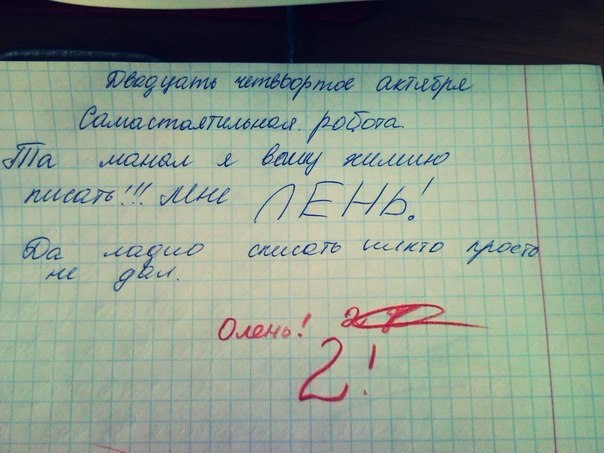 Двадцать четвёортое актября
Самастаятильная робота.
Та манал я вашу химию
писать!!! Мне ЛЕНЬ!
Да ладно списать никто просто
не дал.
Олень!
2!